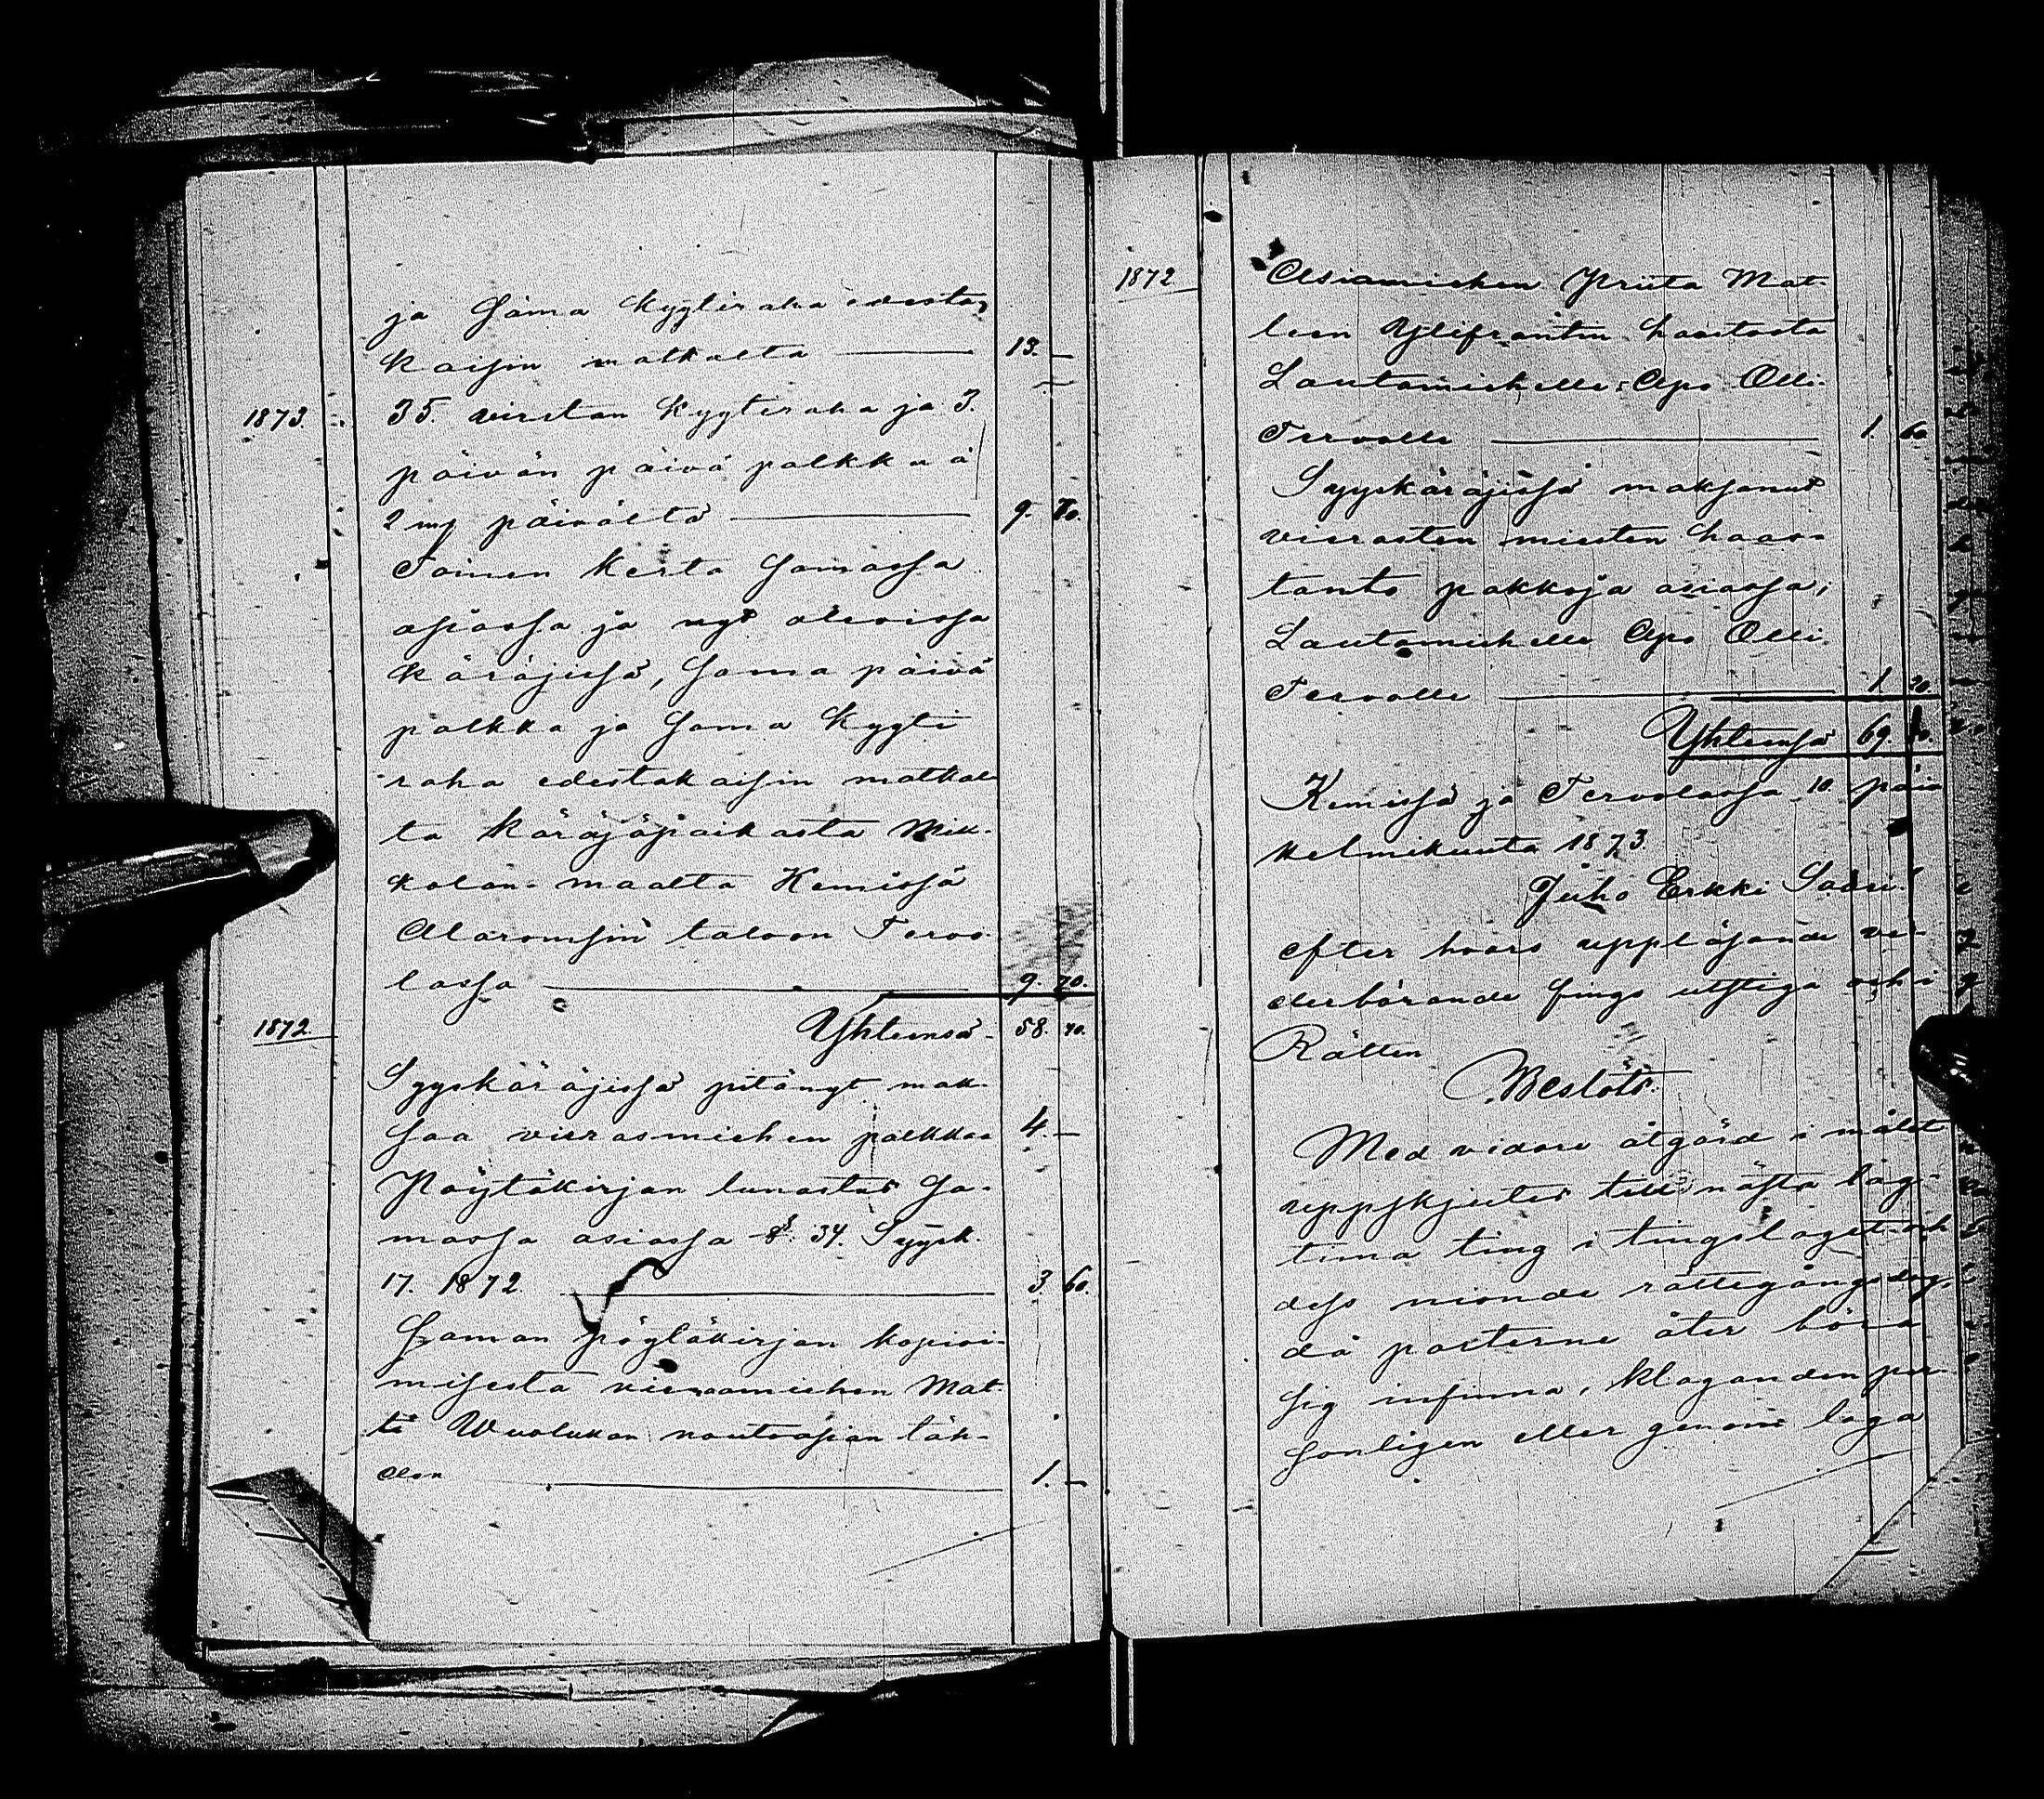 ja sama kyytiraha edesta-
kaisin matkalta 13. —
1873. 35. virstan kyytiraha ja 3.
päivän päivä palkka á
2 mg päivältä 9. 70.
Toinen kerta samassa
asiassa ja nyt olevissa
käräjissä, sama päivä
palkka ja sama kyyti
raha edestakaisin matkal-
ta käräjäpaikasta Mik-
kolan-maalta Kemissä
Alaromsin taloon Tervo-
lassa 9. 70.
1872. Yhteensä 58. 40.
Syyskäräjissä pitänyt mak-
saa vierasmiehen palkkaa 4. —
Pöytäkirjan lunastus sa-
massa asiassa §. 34. Syysk.
17. 1872. 3. 60.
Saman pöytäkirjan kopioi-
misesta vieraamiehen Mat-
ti Wuolukan noutoasian täh-
den 1. —
1872 Asiamiehen Priita Mat-
leen Ylifrantin haastosta
Lautamiehelle Apo Olli-
Tervolle 1. 60
Syyskäräjissä maksanut
vierasten miesten haas-
tanto palkkoja asiassa,
Lautamiehelle Apo Olli-
Tervolle 1. 20.
Yhteensä 69. 80.
Kemissä ja Tervolassa 10. päiv
Helmikuuta 1873.
Juho Erkki Saari.
efter hvars uppläsande ve-
derbörande fingo utstiga och i
Rätten
Beslöts:
Med vidare åtgärd i målet
uppskjutes till nästa lag-
tima ting i tingslaget och
dess nionde rättegångsdag,
då parterne åter böra
sig infinna, klaganden per-
sonligen eller genom laga